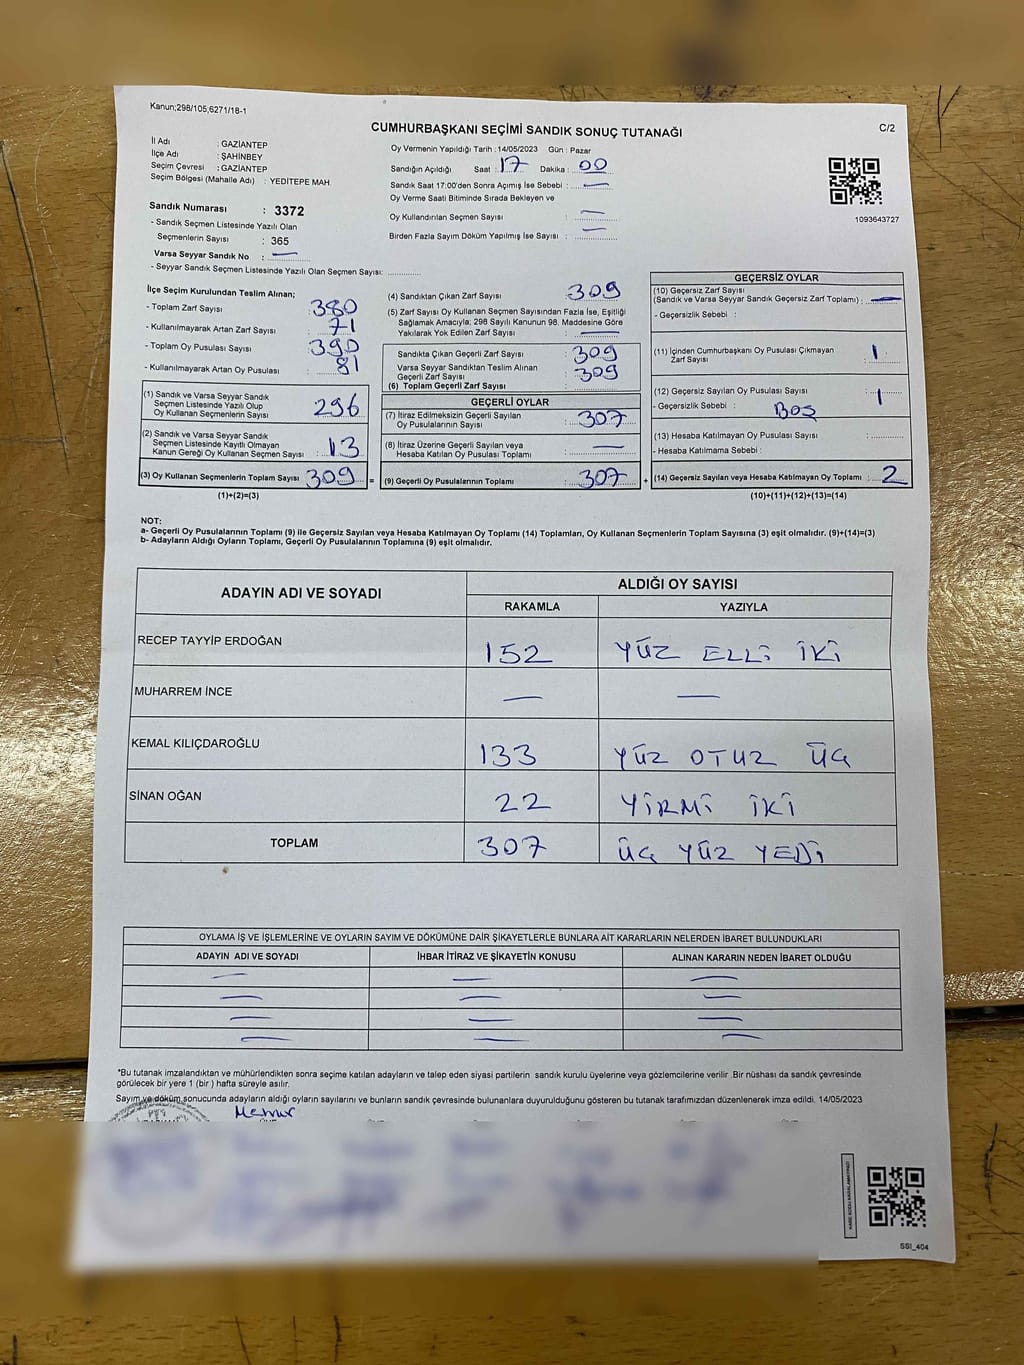 Kanun;298/105;6271/18-1
C/2
CUMHURBAŞKANI SEÇİMİ SANDIK SONUÇ TUTANAĞI
İl Adı : GAZİANTEP
İlçe Adı : ŞAHİNBEY
Seçim Çevresi : GAZİANTEP
Seçim Bölgesi (Mahalle Adı) : YEDİTEPE MAH.
Sandık Numarası : 3372
- Sandık Seçmen Listesinde Yazılı Olan
Seçmenlerin Sayısı : 365
Varsa Seyyar Sandık No : —
- Seyyar Sandık Seçmen Listesinde Yazılı Olan Seçmen Sayısı:
Oy Vermenin Yapıldığı Tarih :14/05/2023 Gün : Pazar
Sandığın Açıldığı Saat : 17 Dakika : 00
Sandık Saat 17:00'den Sonra Açımış İse Sebebi : —
Oy Verme Saati Bitiminde Sırada Bekleyen ve
Oy Kullandırılan Seçmen Sayısı : —
Birden Fazla Sayım Döküm Yapılmış İse Sayısı : —
1093643727
İlçe Seçim Kurulundan Teslim Alınan;
- Toplam Zarf Sayısı : 380
- Kullanılmayarak Artan Zarf Sayısı : 71
- Toplam Oy Pusulası Sayısı : 390
- Kullanılmayarak Artan Oy Pusulası : 81
(1) Sandık ve Varsa Seyyar Sandık
Seçmen Listesinde Yazılı Olup
Oy Kullanan Seçmenlerin Sayısı : 296
(2) Sandık ve Varsa Seyyar Sandık
Seçmen Listesinde Kayıtlı Olmayan
Kanun Gereği Oy Kullanan Seçmen Sayısı : 13
(3) Oy Kullanan Seçmenlerin Toplam Sayısı : 309 =
(1)+(2)=(3)
(4) Sandıktan Çıkan Zarf Sayısı : 309
(5) Zarf Sayısı Oy Kullanan Seçmen Sayısından Fazla İse, Eşitliği
Sağlamak Amacıyla; 298 Sayılı Kanunun 98. Maddesine Göre
Yakılarak Yok Edilen Zarf Sayısı : —
Sandıkta Çıkan Geçerli Zarf Sayısı : 309
Varsa Seyyar Sandıktan Teslim Alınan
Geçerli Zarf Sayısı : 309
(6) Toplam Geçerli Zarf Sayısı :
GEÇERLİ OYLAR
(7) İtiraz Edilmeksizin Geçerli Sayılan
Oy Pusulalarının Sayısı : 307
(8) İtiraz Üzerine Geçerli Sayılan veya
Hesaba Katılan Oy Pusulası Toplamı : —
(9) Geçerli Oy Pusulalarının Toplamı : 307 +
GEÇERSİZ OYLAR
(10) Geçersiz Zarf Sayısı
(Sandık ve Varsa Seyyar Sandık Geçersiz Zarf Toplamı) : —
- Geçersizlik Sebebi :
(11) İçinden Cumhurbaşkanı Oy Pusulası Çıkmayan
Zarf Sayısı : 1
(12) Geçersiz Sayılan Oy Pusulası Sayısı : 1
- Geçersizlik Sebebi : BOŞ
(13) Hesaba Katılmayan Oy Pusulası Sayısı :
- Hesaba Katılmama Sebebi :
(14) Geçersiz Sayılan veya Hesaba Katılmayan Oy Toplamı : 2
(10)+(11)+(12)+(13)=(14)
NOT:
a- Geçerli Oy Pusulalarının Toplamı (9) ile Geçersiz Sayılan veya Hesaba Katılmayan Oy Toplamı (14) Toplamları, Oy Kullanan Seçmenlerin Toplam Sayısına (3) eşit olmalıdır. (9)+(14)=(3)
b- Adayların Aldığı Oyların Toplamı, Geçerli Oy Pusulalarının Toplamına (9) eşit olmalıdır.
ADAYIN ADI VE SOYADI ALDIĞI OY SAYISI
RAKAMLA YAZIYLA
RECEP TAYYİP ERDOĞAN 152 YÜZ ELLİ İKİ
MUHARREM İNCE — —
KEMAL KILIÇDAROĞLU 133 YÜZ OTUZ ÜÇ
SİNAN OĞAN 22 YİRMİ İKİ
TOPLAM 307 ÜÇ YÜZ YEDİ
OYLAMA İŞ VE İŞLEMLERİNE VE OYLARIN SAYIM VE DÖKÜMÜNE DAİR ŞİKAYETLERLE BUNLARA AİT KARARLARIN NELERDEN İBARET BULUNDUKLARI
ADAYIN ADI VE SOYADI İHBAR İTİRAZ VE ŞİKAYETİN KONUSU ALINAN KARARIN NEDEN İBARET OLDUĞU
— — —
— — —
— — —
— — —
*Bu tutanak imzalandıktan ve mühürlendikten sonra seçime katılan adayların ve talep eden siyasi partilerin sandık kurulu üyelerine veya gözlemcilerine verilir .Bir nüshası da sandık çevresinde
görülecek bir yere 1 (bir ) hafta süreyle asılır.
Sayım ve döküm sonucunda adayların aldığı oyların sayılarını ve bunların sandık çevresinde bulunanlara duyurulduğunu gösteren bu tutanak tarafımızdan düzenlenerek imza edildi. 14/05/2023
Memur
SSI_404